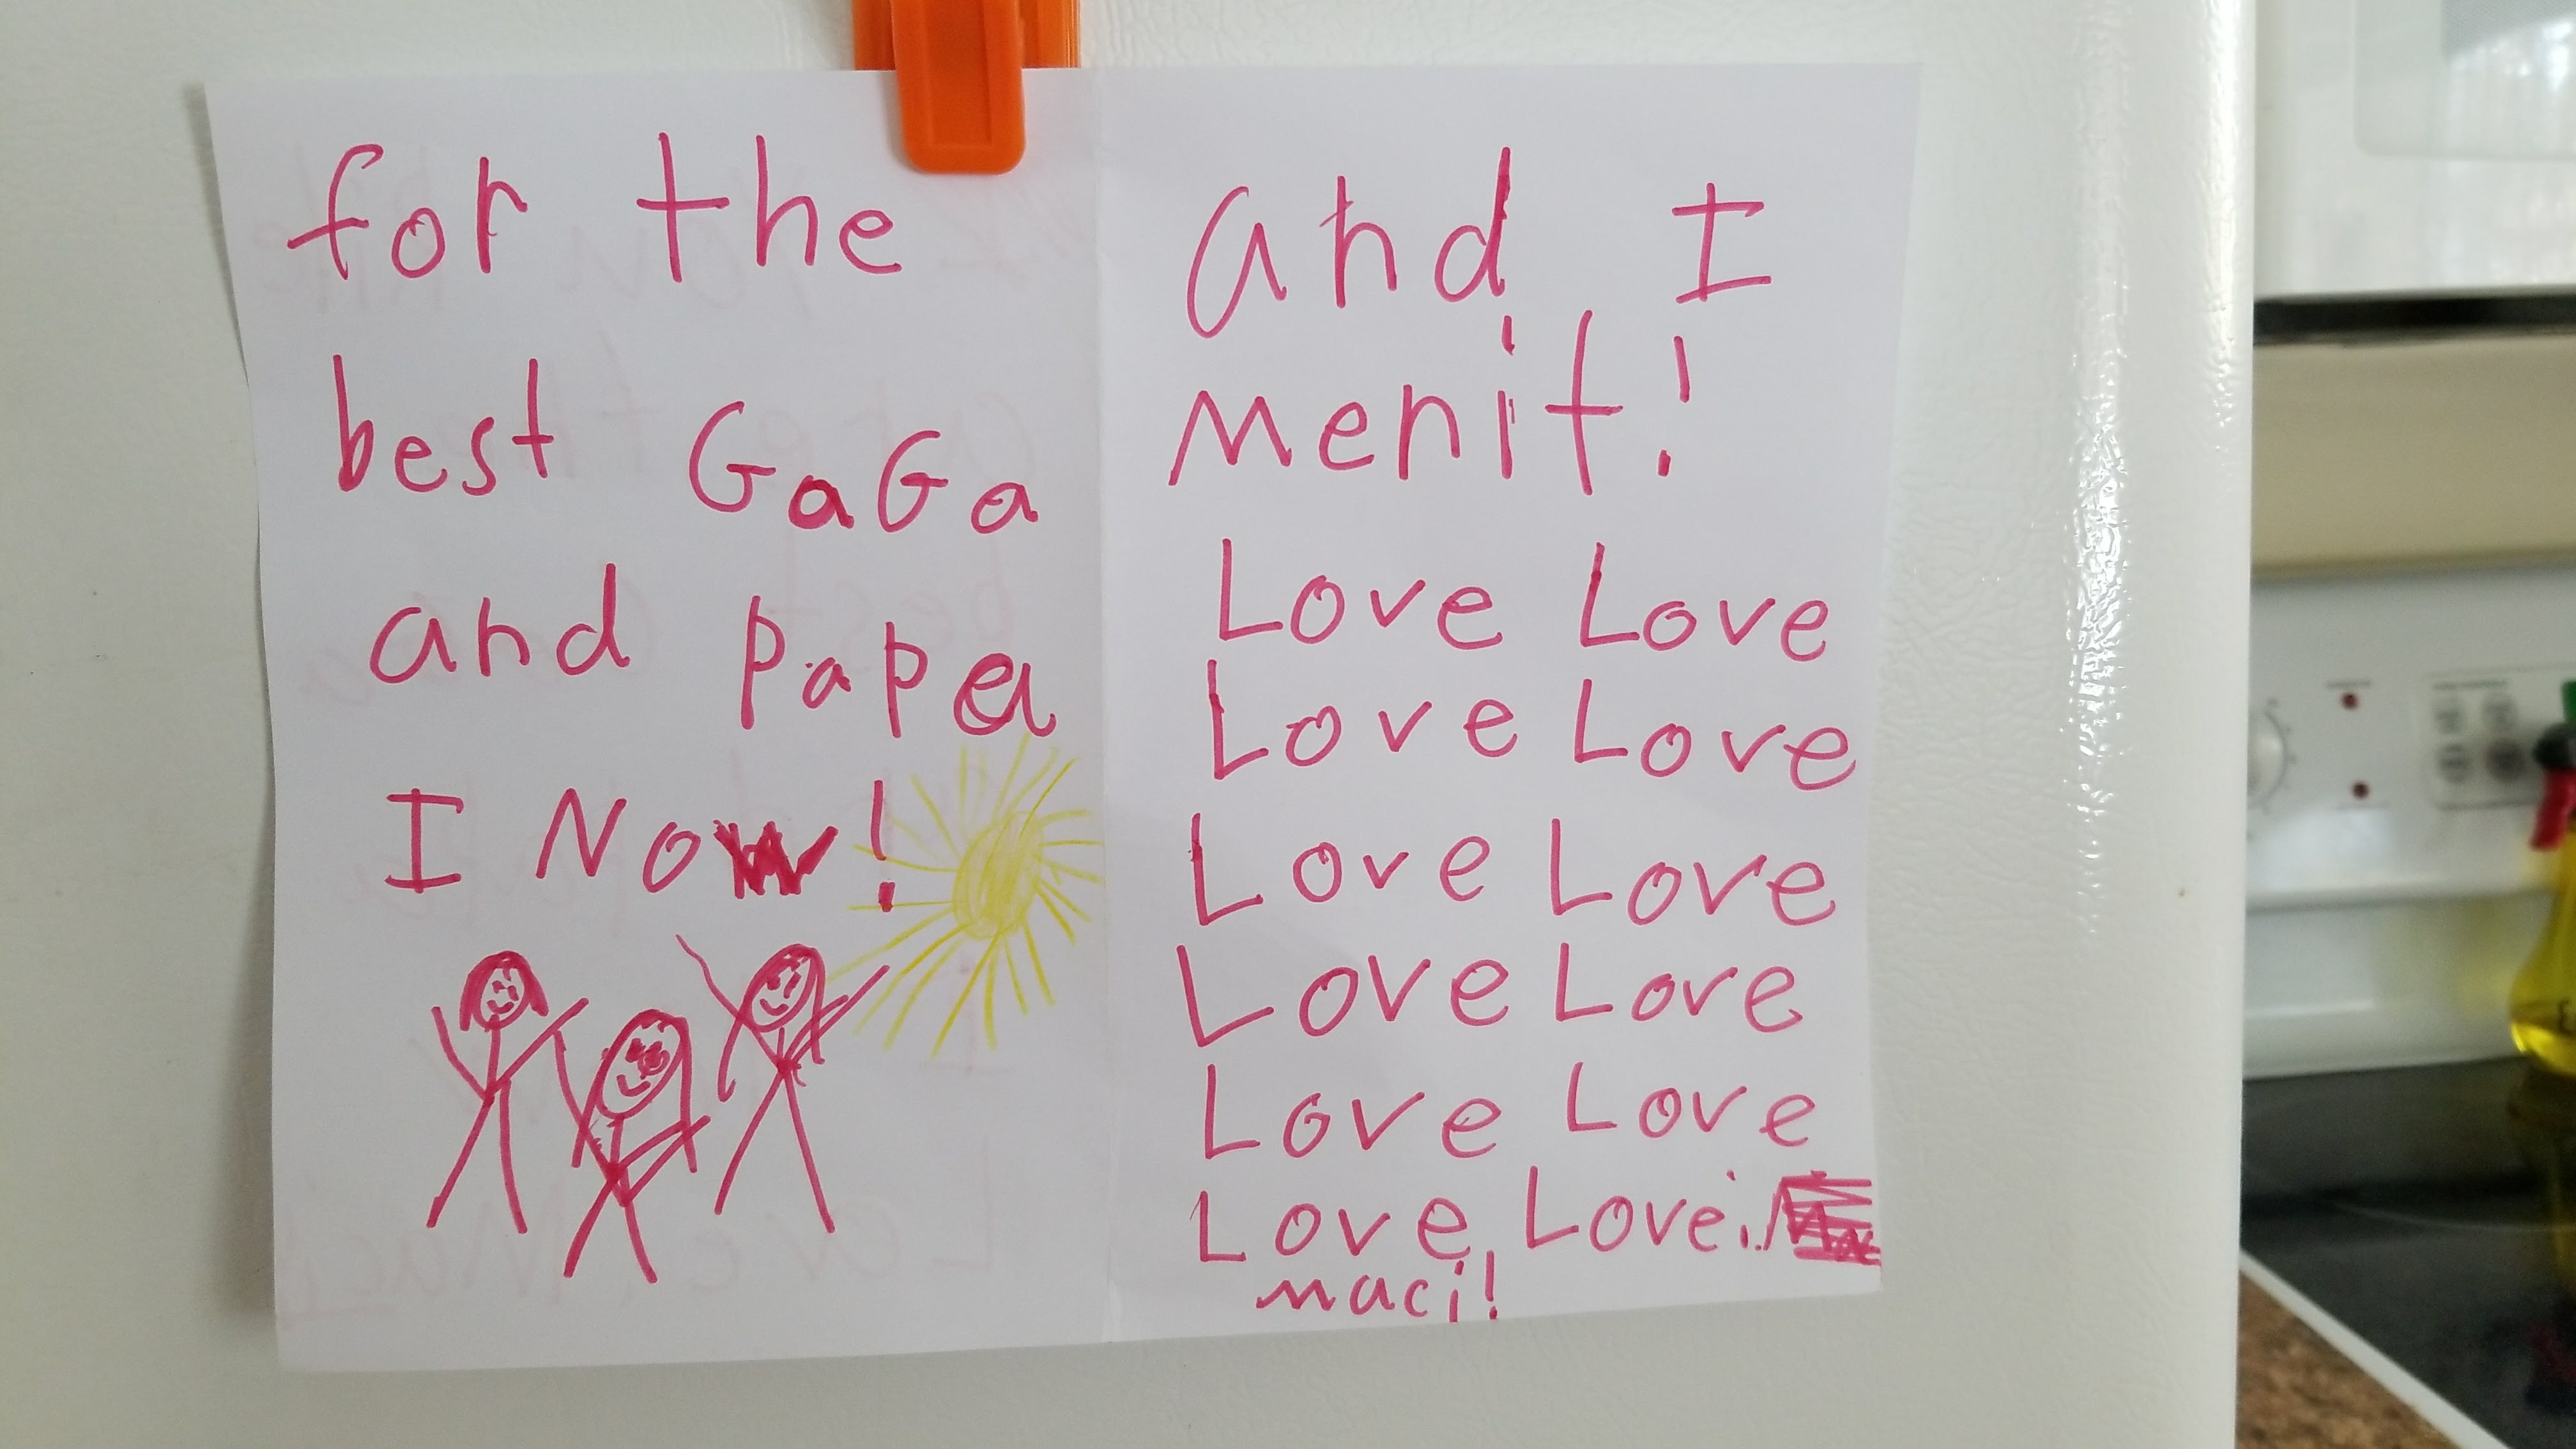 for the
best GaGa
and papa
I Now!
and I
menit!
Love Love
Love Love
Love Love
Love Love
Love Love
Love, Love.
maci!